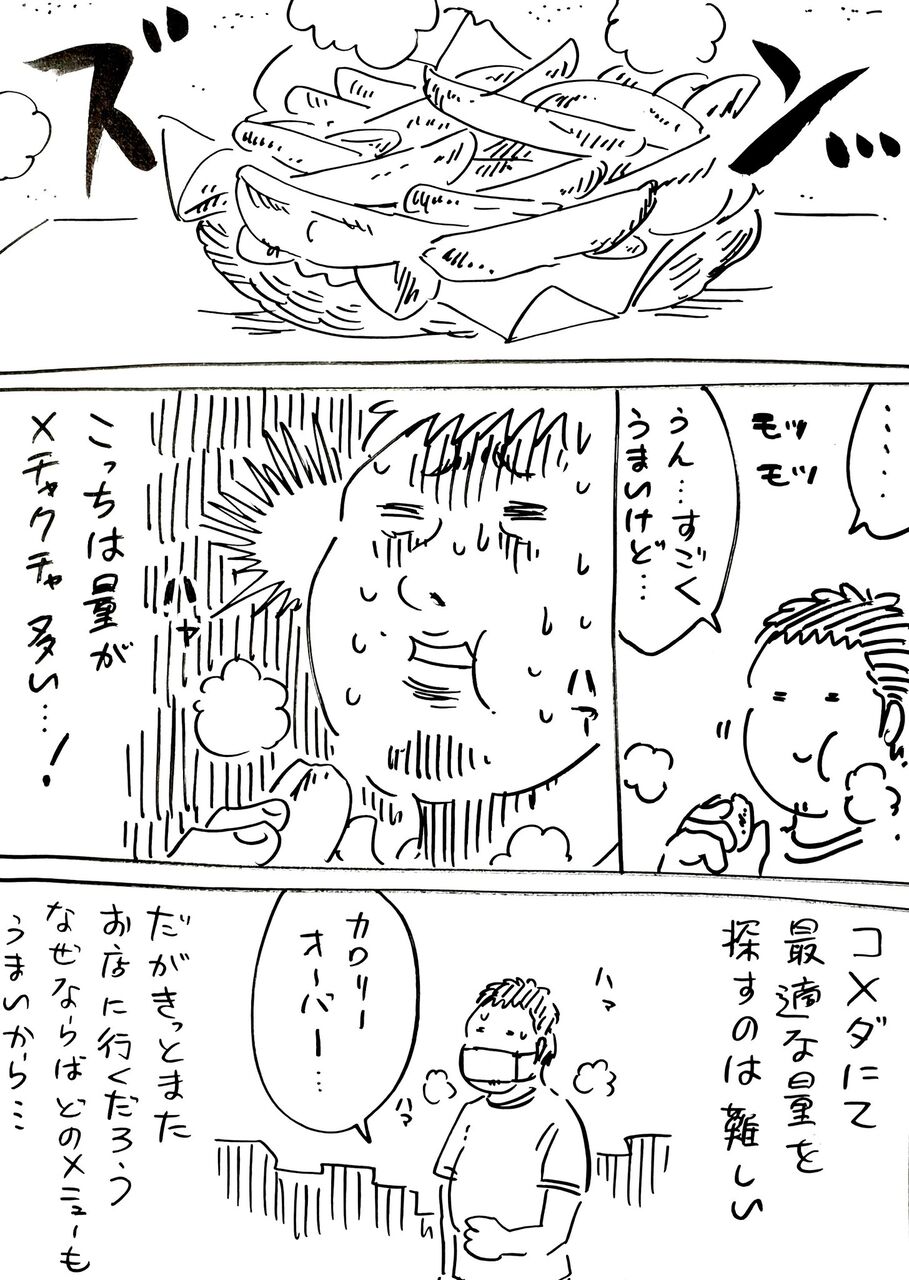 ズン…
……
モッ
モッ
うん…すごく
うまいけど…
ハァ
ハァ
こっちは量が
メチャクチャ多い…!
コメダにて
最適な量を
探すのは難しい
ハァ
カロリー
オーバー…
ハァ
だがきっとまた
お店に行くだろう
なぜならばどのメニューも
うまいから…